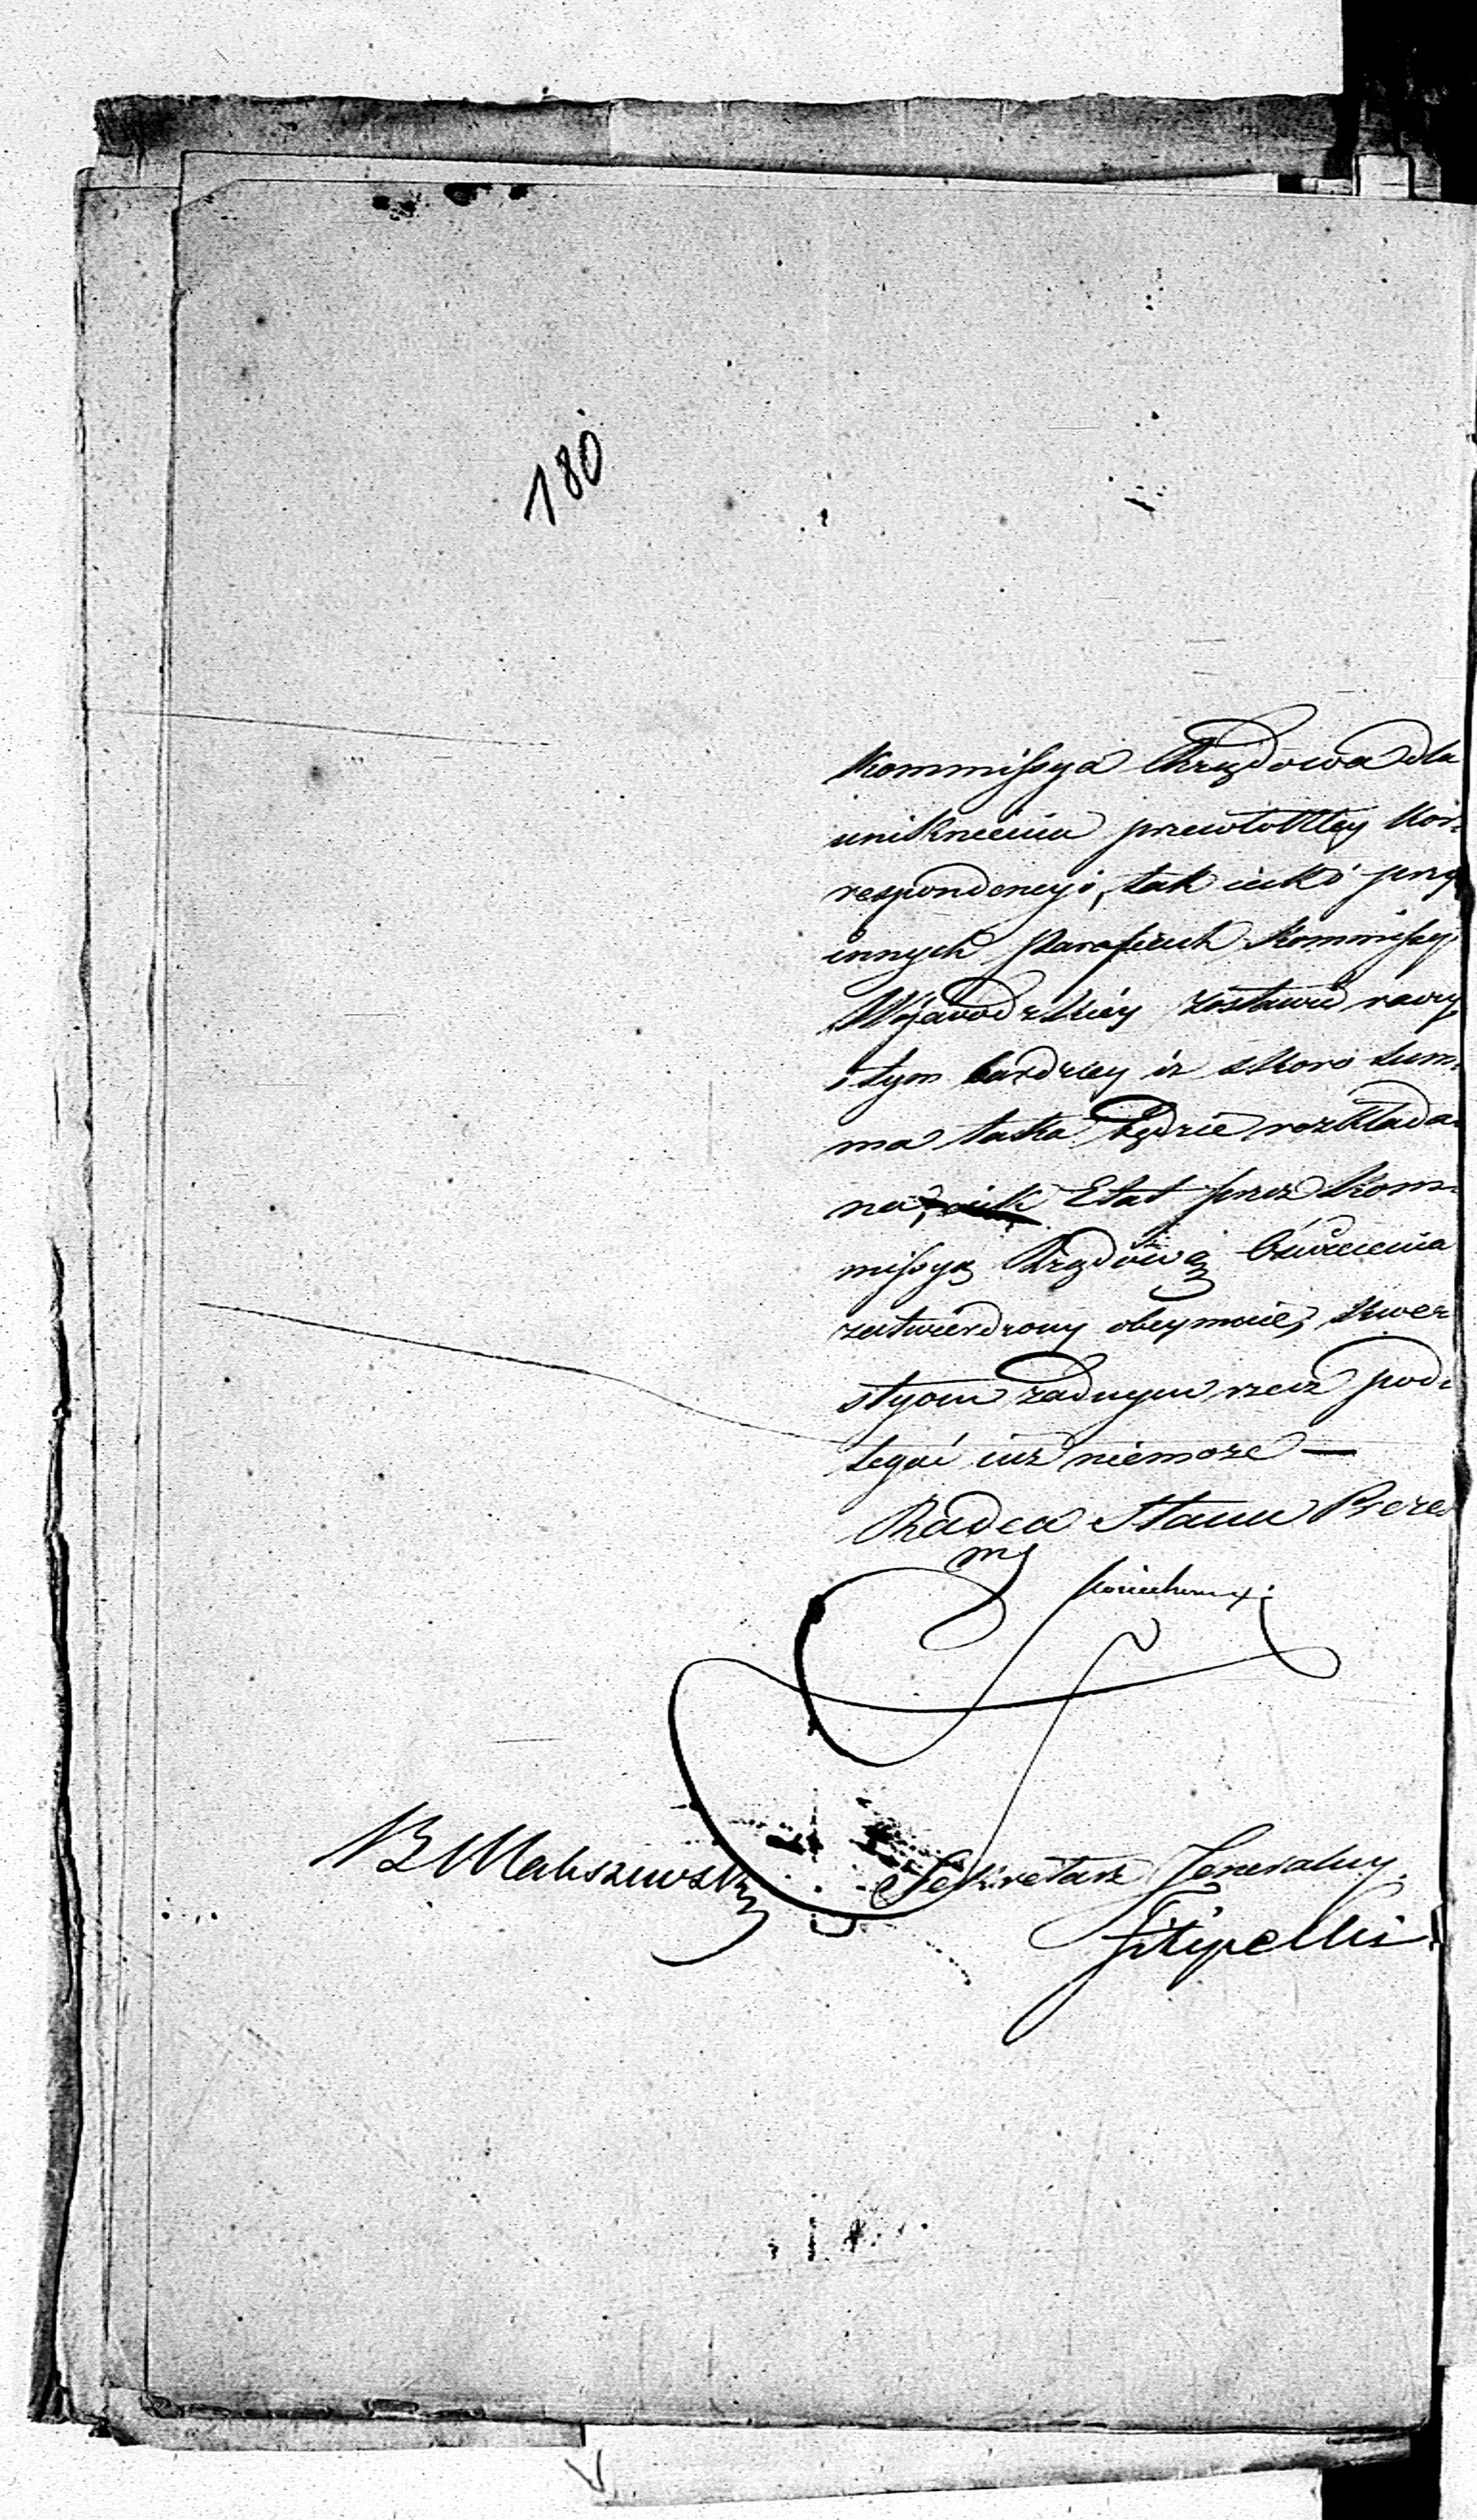 180
Kommissya Rządowa dla
uniknienia przewłokłey kor-
respondencyi, tak iako przy
innych Parafiach Kommissyi
Wojewodzkiey zostawić raczy
i tym bardziey iż skoro Sum-
ma taka będzie rozkłada-
na, iak Etat przez Kom-
missyą Rządową Oświecenia
zatwierdzony obeymuie, kwe-
styom żadnym rzecz pod-
legać iuż niemoże —
Radca Stanu Prezes
Sekretarz Jeneralny
Filipecki